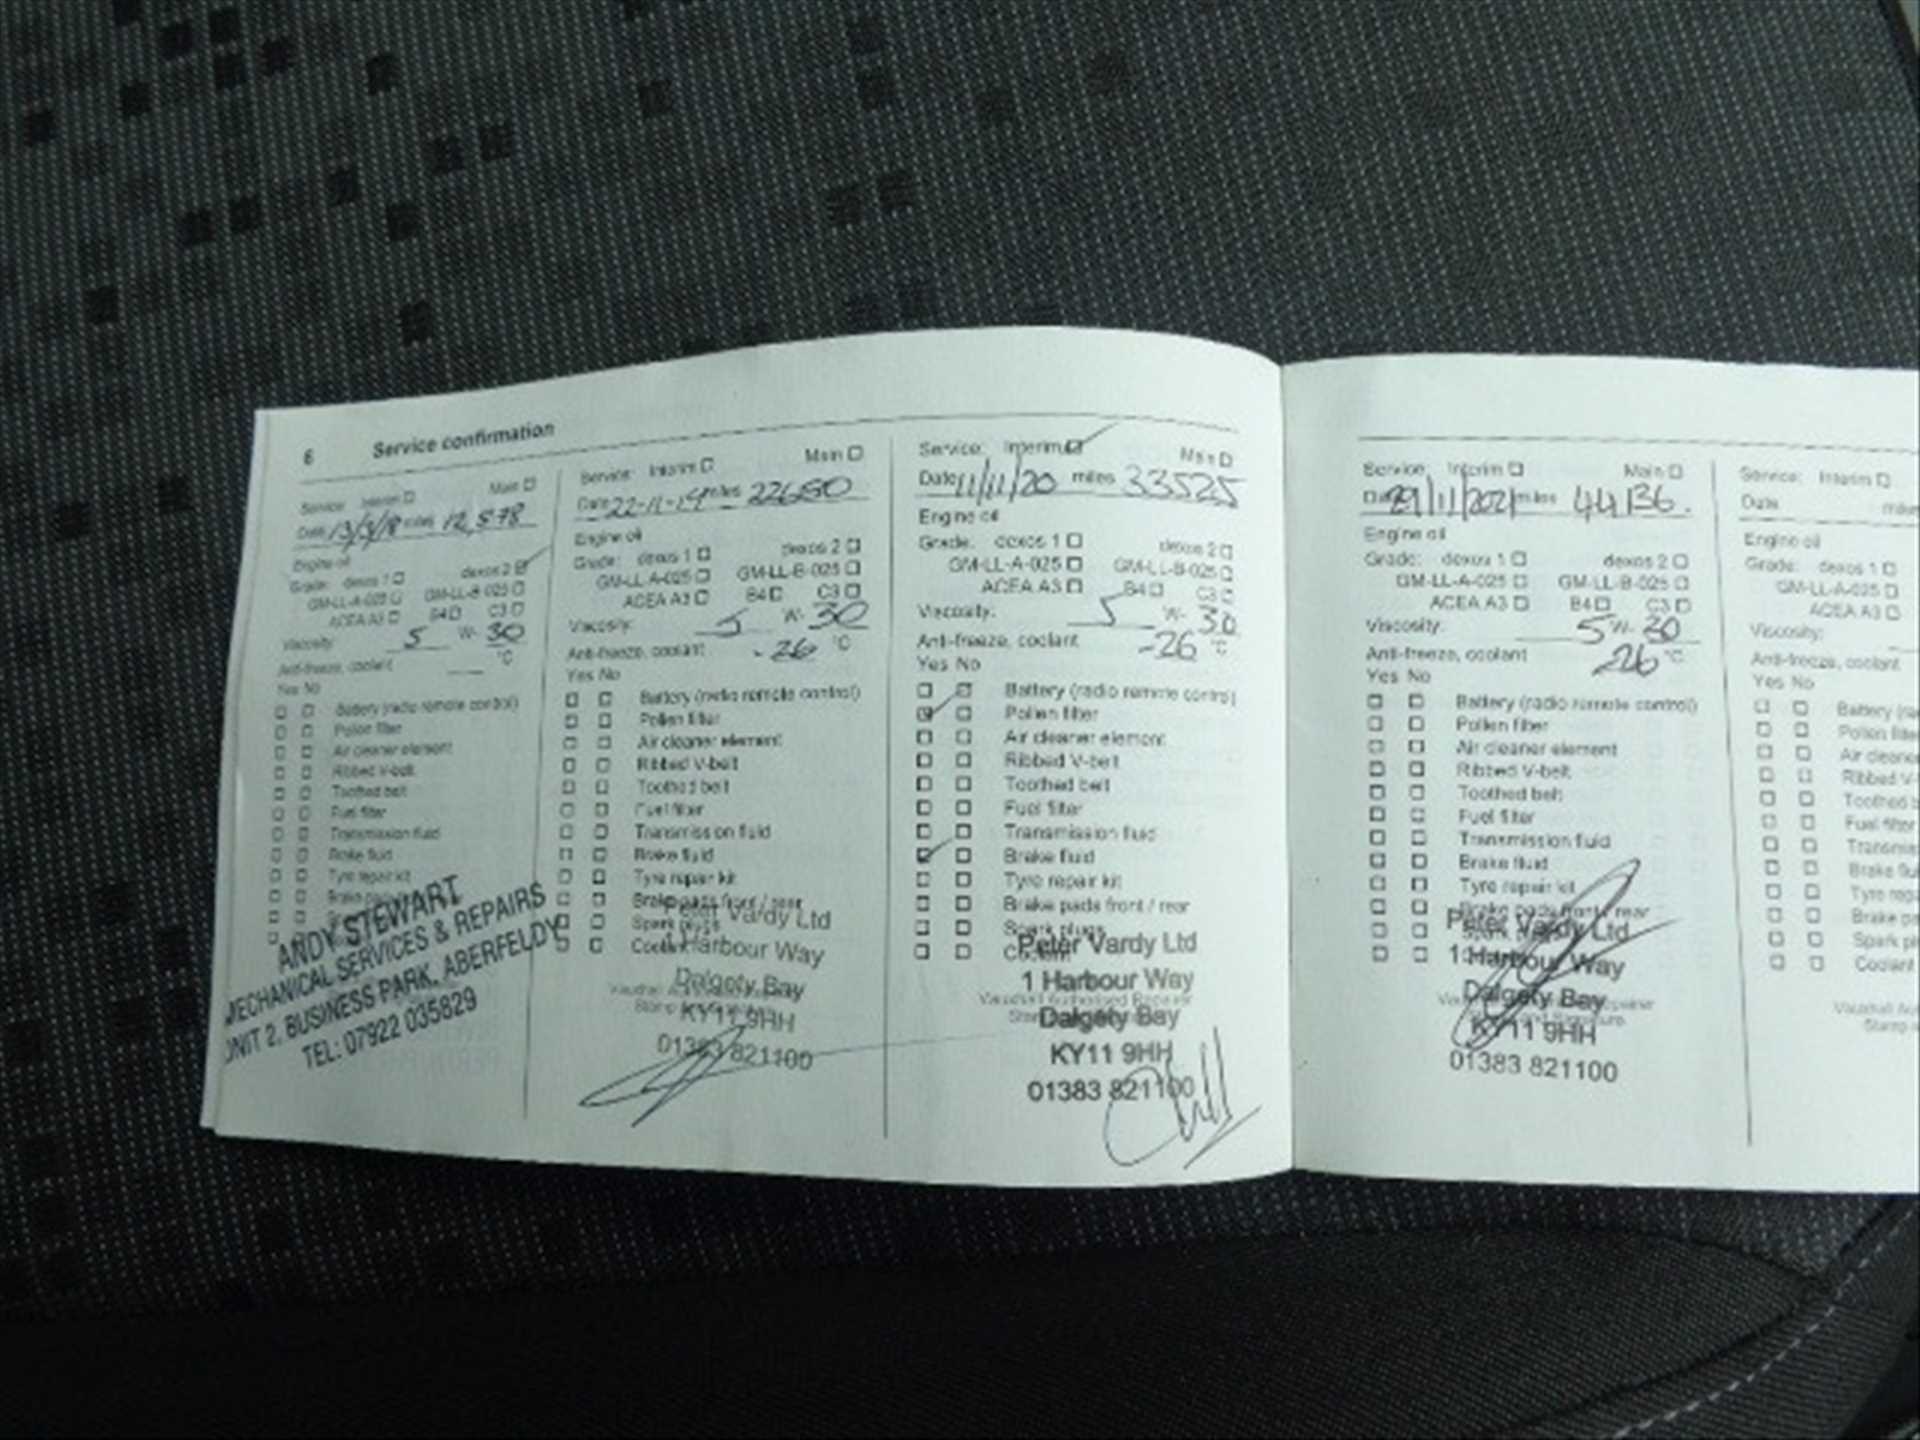 6 Service confirmation
Service: Interim Main
Date 13/3/18 miles 12,878
Engine oil
Grade: dexos 1 dexos 2
GM-LL-A-025 GM-LL-B-025
ACEA A3 B4 C3
Viscosity: 5 W- 30
Anti-freeze, coolant °C
Yes No
Battery (radio remote control)
Pollen filter
Air cleaner element
Ribbed V-belt
Toothed belt
Fuel filter
Transmission fluid
Brake fluid
Tyre repair kit
Brake pads
ANDY STEWART
MECHANICAL SERVICES & REPAIRS
UNIT 2, BUSINESS PARK, ABERFELDY
TEL: 07922 035829
Service: Interim Main
Date 22-11-19 miles 22680
Engine oil
Grade: dexos 1 dexos 2
GM-LL-A-025 GM-LL-B-025
ACEA A3 B4 C3
Viscosity: 5 W- 30
Anti-freeze, coolant -26 °C
Yes No
Battery (radio remote control)
Pollen filter
Air cleaner element
Ribbed V-belt
Toothed belt
Fuel filter
Transmission fluid
Brake fluid
Tyre repair kit
Brake pads front / rear
Spark plugs
Coolant
Peter Vardy Ltd
1 Harbour Way
Dalgety Bay
KY11 9HH
01383 821100
Service: Interim Main
Date 11/11/20 miles 33525
Engine oil
Grade: dexos 1 dexos 2
GM-LL-A-025 GM-LL-B-025
ACEA A3 B4 C3
Viscosity: 5 W- 30
Anti-freeze, coolant -26 °C
Yes No
Battery (radio remote control)
Pollen filter
Air cleaner element
Ribbed V-belt
Toothed belt
Fuel filter
Transmission fluid
Brake fluid
Tyre repair kit
Brake pads front / rear
Spark plugs
Coolant
Peter Vardy Ltd
1 Harbour Way
Vauxhall Authorised Repairer
Dalgety Bay
KY11 9HH
01383 821100
Service: Interim Main
Date 29/11/2021 miles 44136.
Engine oil
Grade: dexos 1 dexos 2
GM-LL-A-025 GM-LL-B-025
ACEA A3 B4 C3
Viscosity: 5 W- 30
Anti-freeze, coolant -26 °C
Yes No
Battery (radio remote control)
Pollen filter
Air cleaner element
Ribbed V-belt
Toothed belt
Fuel filter
Transmission fluid
Brake fluid
Tyre repair kit
Brake pads front / rear
Peter Vardy Ltd
1 Harbour Way
Dalgety Bay
KY11 9HH
01383 821100
Service: Interim
Date
Engine oil
Grade: dexos 1
GM-LL-A-025
ACEA A3
Viscosity:
Anti-freeze, coolant
Yes No
Battery
Pollen filter
Air cleaner
Ribbed
Toothed
Fuel filter
Brake
Tyre
Brake
Spark
Coolant
Vauxhall